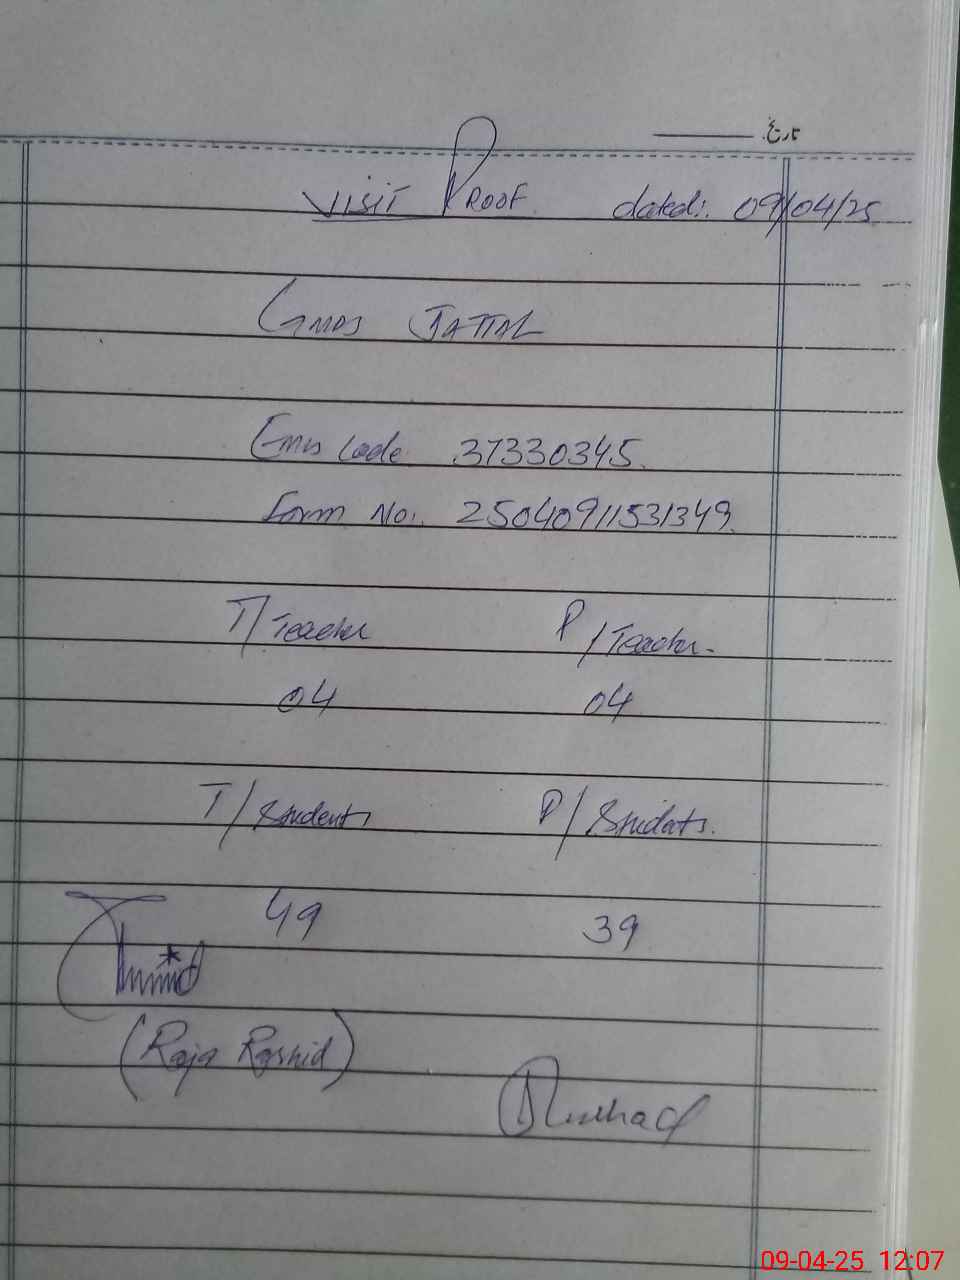 تاریخ
VISIT PROOF. dated:. 09/04/25
GMPS JATTAL
Emis Code 37330345.
Form No:. 25040911531349.
T/Teacher P/Teacher.
04 04
T/Students P/Students.
49 39
(Raja Rashid)
09-04-25 12:07